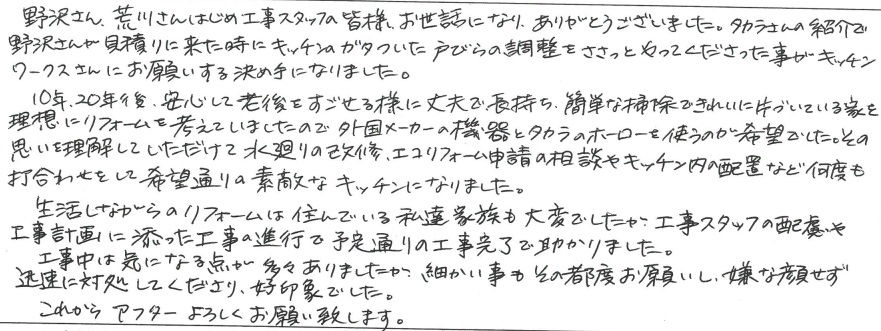 野沢さん、荒川さんはじめ工事スタッフの皆様、お世話になり、ありがとうございました。タカラさんの紹介で
野沢さんが見積りに来た時にキッチンのガタついた戸びらの調整をささっとやってくださった事がキッチン
ワークスさんにお願いする決め手になりました。
10年、20年後、安心して老後をすごせる様に丈夫で長持ち、簡単な掃除できれいに片づいている家を
理想にリフォームを考えていましたので外国メーカーの機器とタカラのホーローを使うのが希望でした。その
思いを理解していただけて水廻りの改修、エコリフォーム申請の相談やキッチン内の配置など何度も
打合わせをして希望通りの素敵なキッチンになりました。
生活しながらのリフォームは住んでいる私達家族も大変でしたが、工事スタッフの配慮や
工事計画に添った工事の進行で予定通りの工事完了で助かりました。
工事中は気になる点が多々ありましたが、細かい事もその都度お願いし、嫌な顔せず
迅速に対処してくださり、好印象でした。
これからアフターよろしくお願い致します。